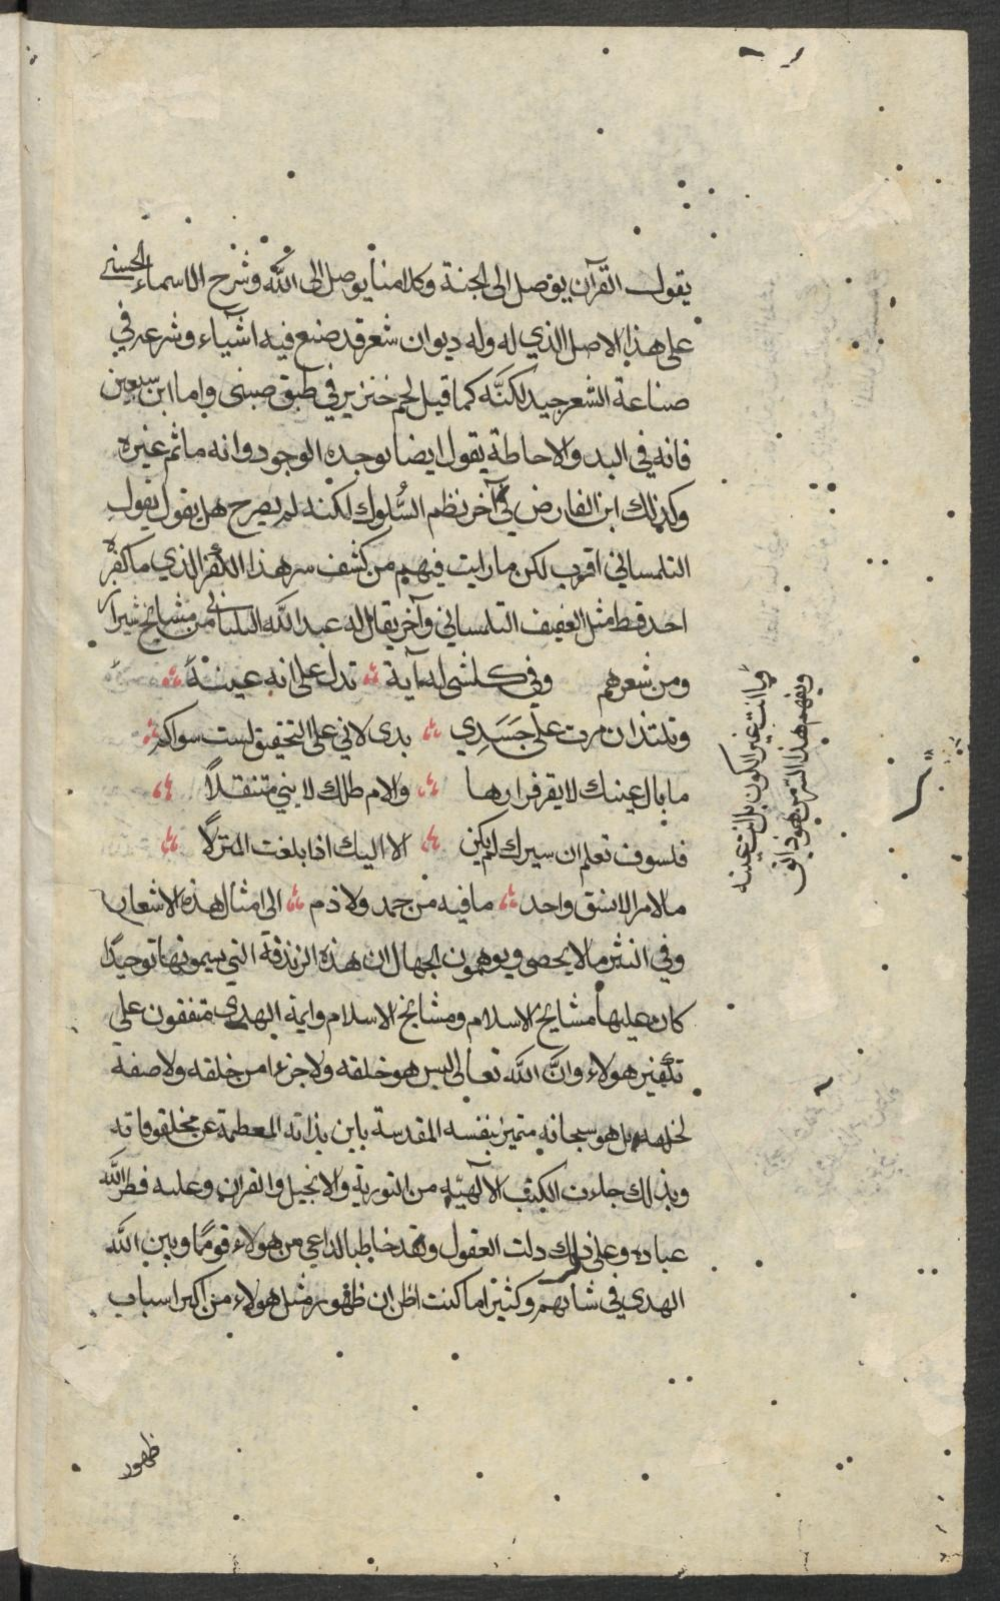 يقول القرآن يوصل الى الجنة وكلامنا يوصل الى الله وشرح الاسماء الحسنى
على هذا الاصل الذي له وله ديوان شعر قد صنع فيه اشياء وشعره في
صناعة الشعر جيد لكنّه كما قيل لحم خنزير في طبق صيني واما ابن سبعين
فانه في البد والاحاطة يقول ايضا بوحدة الوجود وانه ماثم غيره
وكذلك ابن الفارض في آخر نظم السُّلوك لكنه لم يصرح هل يقول بقول
التلمساني اقرب لكن ما رايت فيهم من كشف سر هذا الكفر الذي ما كفره
احد قط مثل العفيف التلمساني وآخر يقال له عبد الله البلياني من مشايخ شيراز
ومن شعرهم وفي كلشى له آية تدل على انه عينهٌ
وتلتذ ان مرت على جَسَدِي يدى لاني على التحقيق لست سواكم
ما بال عينك لا يقر قرارها والام ظلك لا يني متنقلاً
فلسوف تعلم ان سيرك لم يكن الا اليك اذا بلغت المنزلا
ما الامر الا نسق واحد ما فيه من حمد ولا ذم الى امثال هذه الاشعار
وفي النثر ما لا يحصى ويوهمون الجهال ان هذه الزندقة التي يسمونها توحيدًا
كان عليها مشايخ الاسلام ومشايخ الاسلام وايمة الهدى متفقون على
تكفير هولاء وانّ الله تعالى ليس هو خلقه ولا جزءا من خلقه ولا صفة
لخلقه بل هو سبحانه متميز بنفسه المقدسة باين بذاته المعظمة عن مخلوقاته
وبذلك جاءت الكتب الآلهيّة من التورية والانجيل والقران وعليه فطر الله
عباده وعلى ذلك دلت العقول وقد خاطب الداعي من هولاء قومًا وبين الله
الهدى في شانهم وكثيرا ما كنت اظن ان ظهور مثل هولاء من اكبر اسباب
ظهور
وما انت غير الكون بل انت عينه
ويفهم هذا السر من هو ذايق